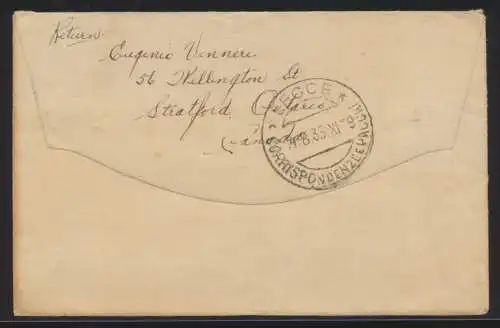 Return
Eugenio Vennere
56 Wellington St
Stratford Ontario
Canada
LECCE
8.35.XI
CORRISPONDENZE E PACCHI